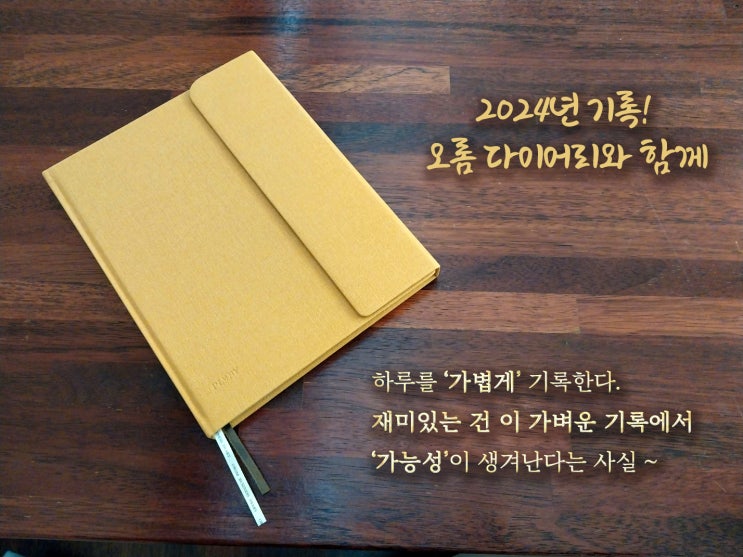 2024년 기록!
오롬 다이어리와 함께
하루를 ‘가볍게’ 기록한다.
재미있는 건 이 가벼운 기록에서
‘가능성’이 생겨난다는 사실 ~